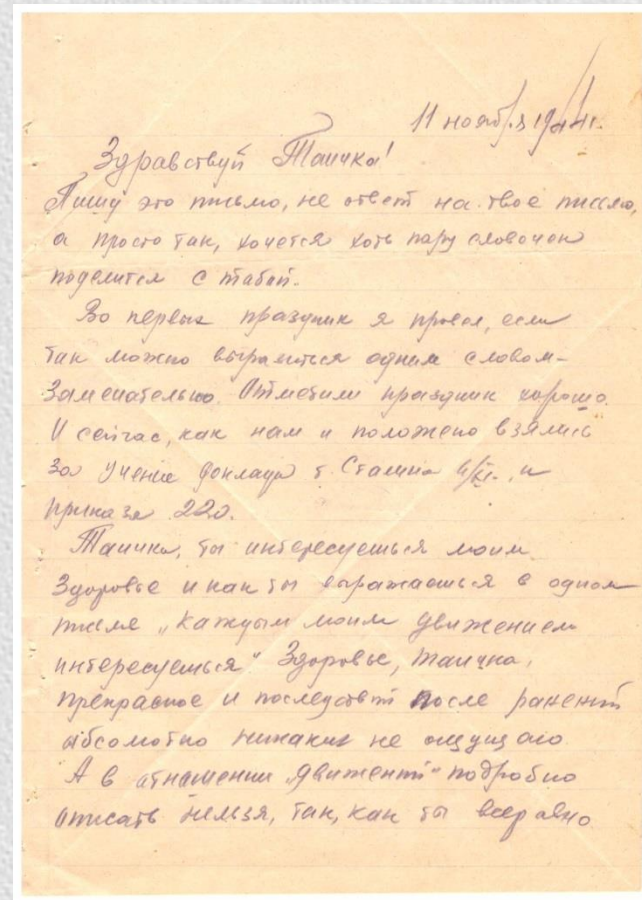 11 ноября 1944г.
Здравствуй Таичка!
Пишу это письмо, не ответ на твое письмо,
а просто так, хочется хоть пару словочек
поделится с табой.
Во первых праздник я провел, если
так можно выразится одним словом-
Замечательно. Отметили праздник хорошо.
И сейчас, как нам и положено взялись
за учение доклада т. Сталина 6/XI., и
приказа 220.
Таичка, ты интересуешься моим
Здоровье и как ты выражаешься в одном
письме „каждым моим движением
интересуешься" Здоровье, таичка,
прекрасное и последствий после ранений
абсолютно никаких не ощущаю.
А в атнашении „движений" подробно
описать нельзя, так, как ты всеравно